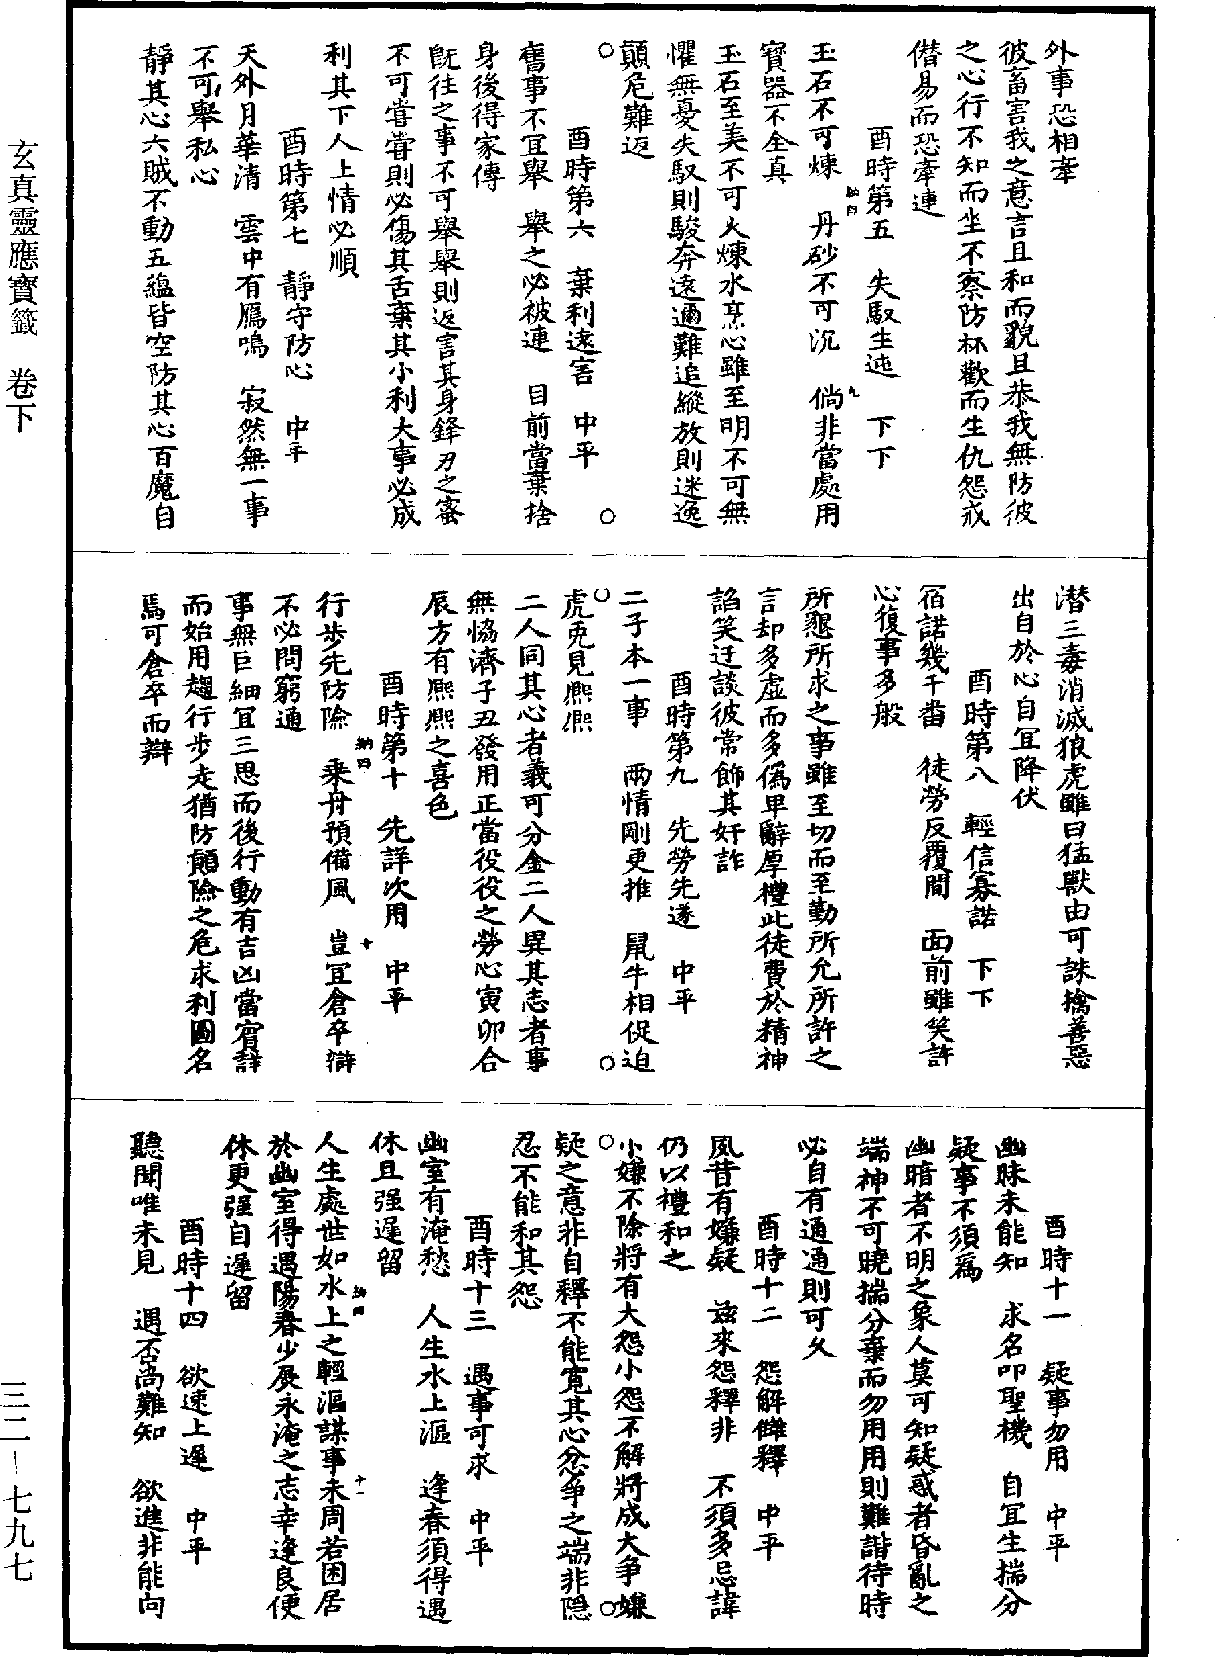 玄真靈應寶籤　卷下
三二—七九七
外事恐相牽
彼畜害我之意言且和而貌且恭我無防彼
之心行不知而坐不察防杯歡而生仇怨戒
僭易而恐牽連
酉時第五　失馭生迍　下下
玉石不可煉　丹砂不可沉　倘非當處用
寶器不全真
玉石至美不可火煉水烹心雖至明不可無
懼無憂失馭則駿奔遠邇難追縱放則迷逸
顛危難返
酉時第六　棄利遠害　中平
舊事不宜舉　舉之必被連　目前當棄捨
身後得家傳
既往之事不可舉舉則返害其身鋒刃之蜜
不可嘗嘗則必傷其舌棄其小利大事必成
利其下人上情必順
酉時第七　靜守防心　中平
天外月華清　雲中有鴈鳴　寂然無一事
不可舉私心
靜其心六賊不動五蘊皆空防其心百魔自
潛三毒消滅狼虎雖曰猛獸由可誅擒善惡
出自於心自宜降伏
酉時第八　輕信寡諾　下下
宿諾幾千畨　徒勞反覆間　面前雖笑許
心復事多般
所懇所求之事雖至切而至勤所允所許之
言却多虛而多偽卑辭厚禮此徒費於精神
諂笑迂談彼常飾其奸詐
酉時第九　先勞先遂　中平
二子本一事　兩情剛更推　鼠牛相促迫
虎兎見熙熙
二人同其心者義可分金二人異其志者事
無恊濟子丑發用正當役役之勞心寅卯合
辰方有熙熙之喜色
酉時第十　先詳次用　中平
行步先防險　乘舟預備風　豈宜倉卒辯
不必問窮通
事無巨細宜三思而後行動有吉凶當審詳
而始用趨行步走猶防顛險之危求利圖名
焉可倉卒而辯
酉時十一　疑事勿用　中平
幽昧未能知　求名叩聖機　自宜生揣分
疑事不須為
幽暗者不明之象人莫可知疑惑者昏亂之
端神不可曉揣分棄而勿用用則難諧待時
必自有通通則可久
酉時十二　怨解讎釋　中平
夙昔有嫌疑　茲來怨釋非　不須多忌諱
仍以禮和之
小嫌不除將有大怨小怨不解將成大爭嫌
疑之意非自釋不能寬其心忿爭之端非隱
忍不能和其怨
酉時十三　遇事可求　中平
幽室有淹愁　人生水上漚　逢春須得遇
休且强遲留
人生處世如水上之輕漚謀事未周若困居
於幽室得遇陽春少展永淹之志幸逢良便
休更强自遲留
酉時十四　欲速上遲　中平
聽聞唯未見　遇否尚難知　欲進非能向